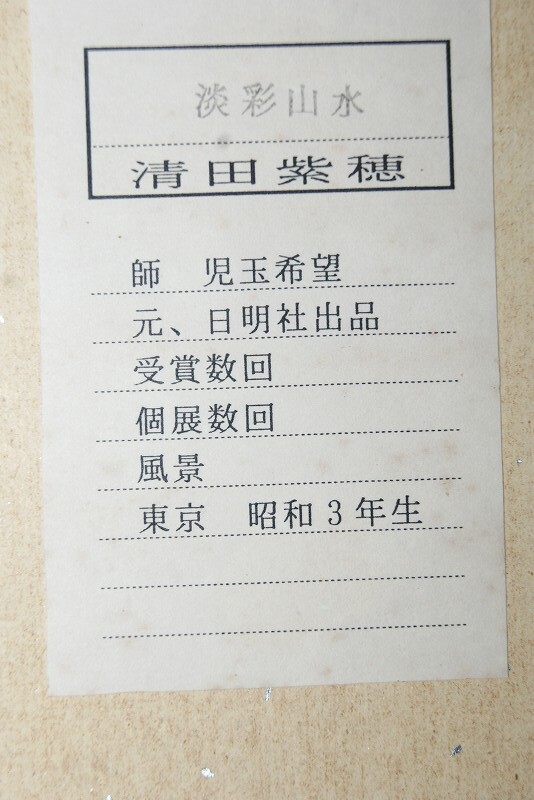 淡彩山水
清田紫穂
師　児玉希望
元、日明社出品
受賞数回
個展数回
風景
東京　昭和3年生